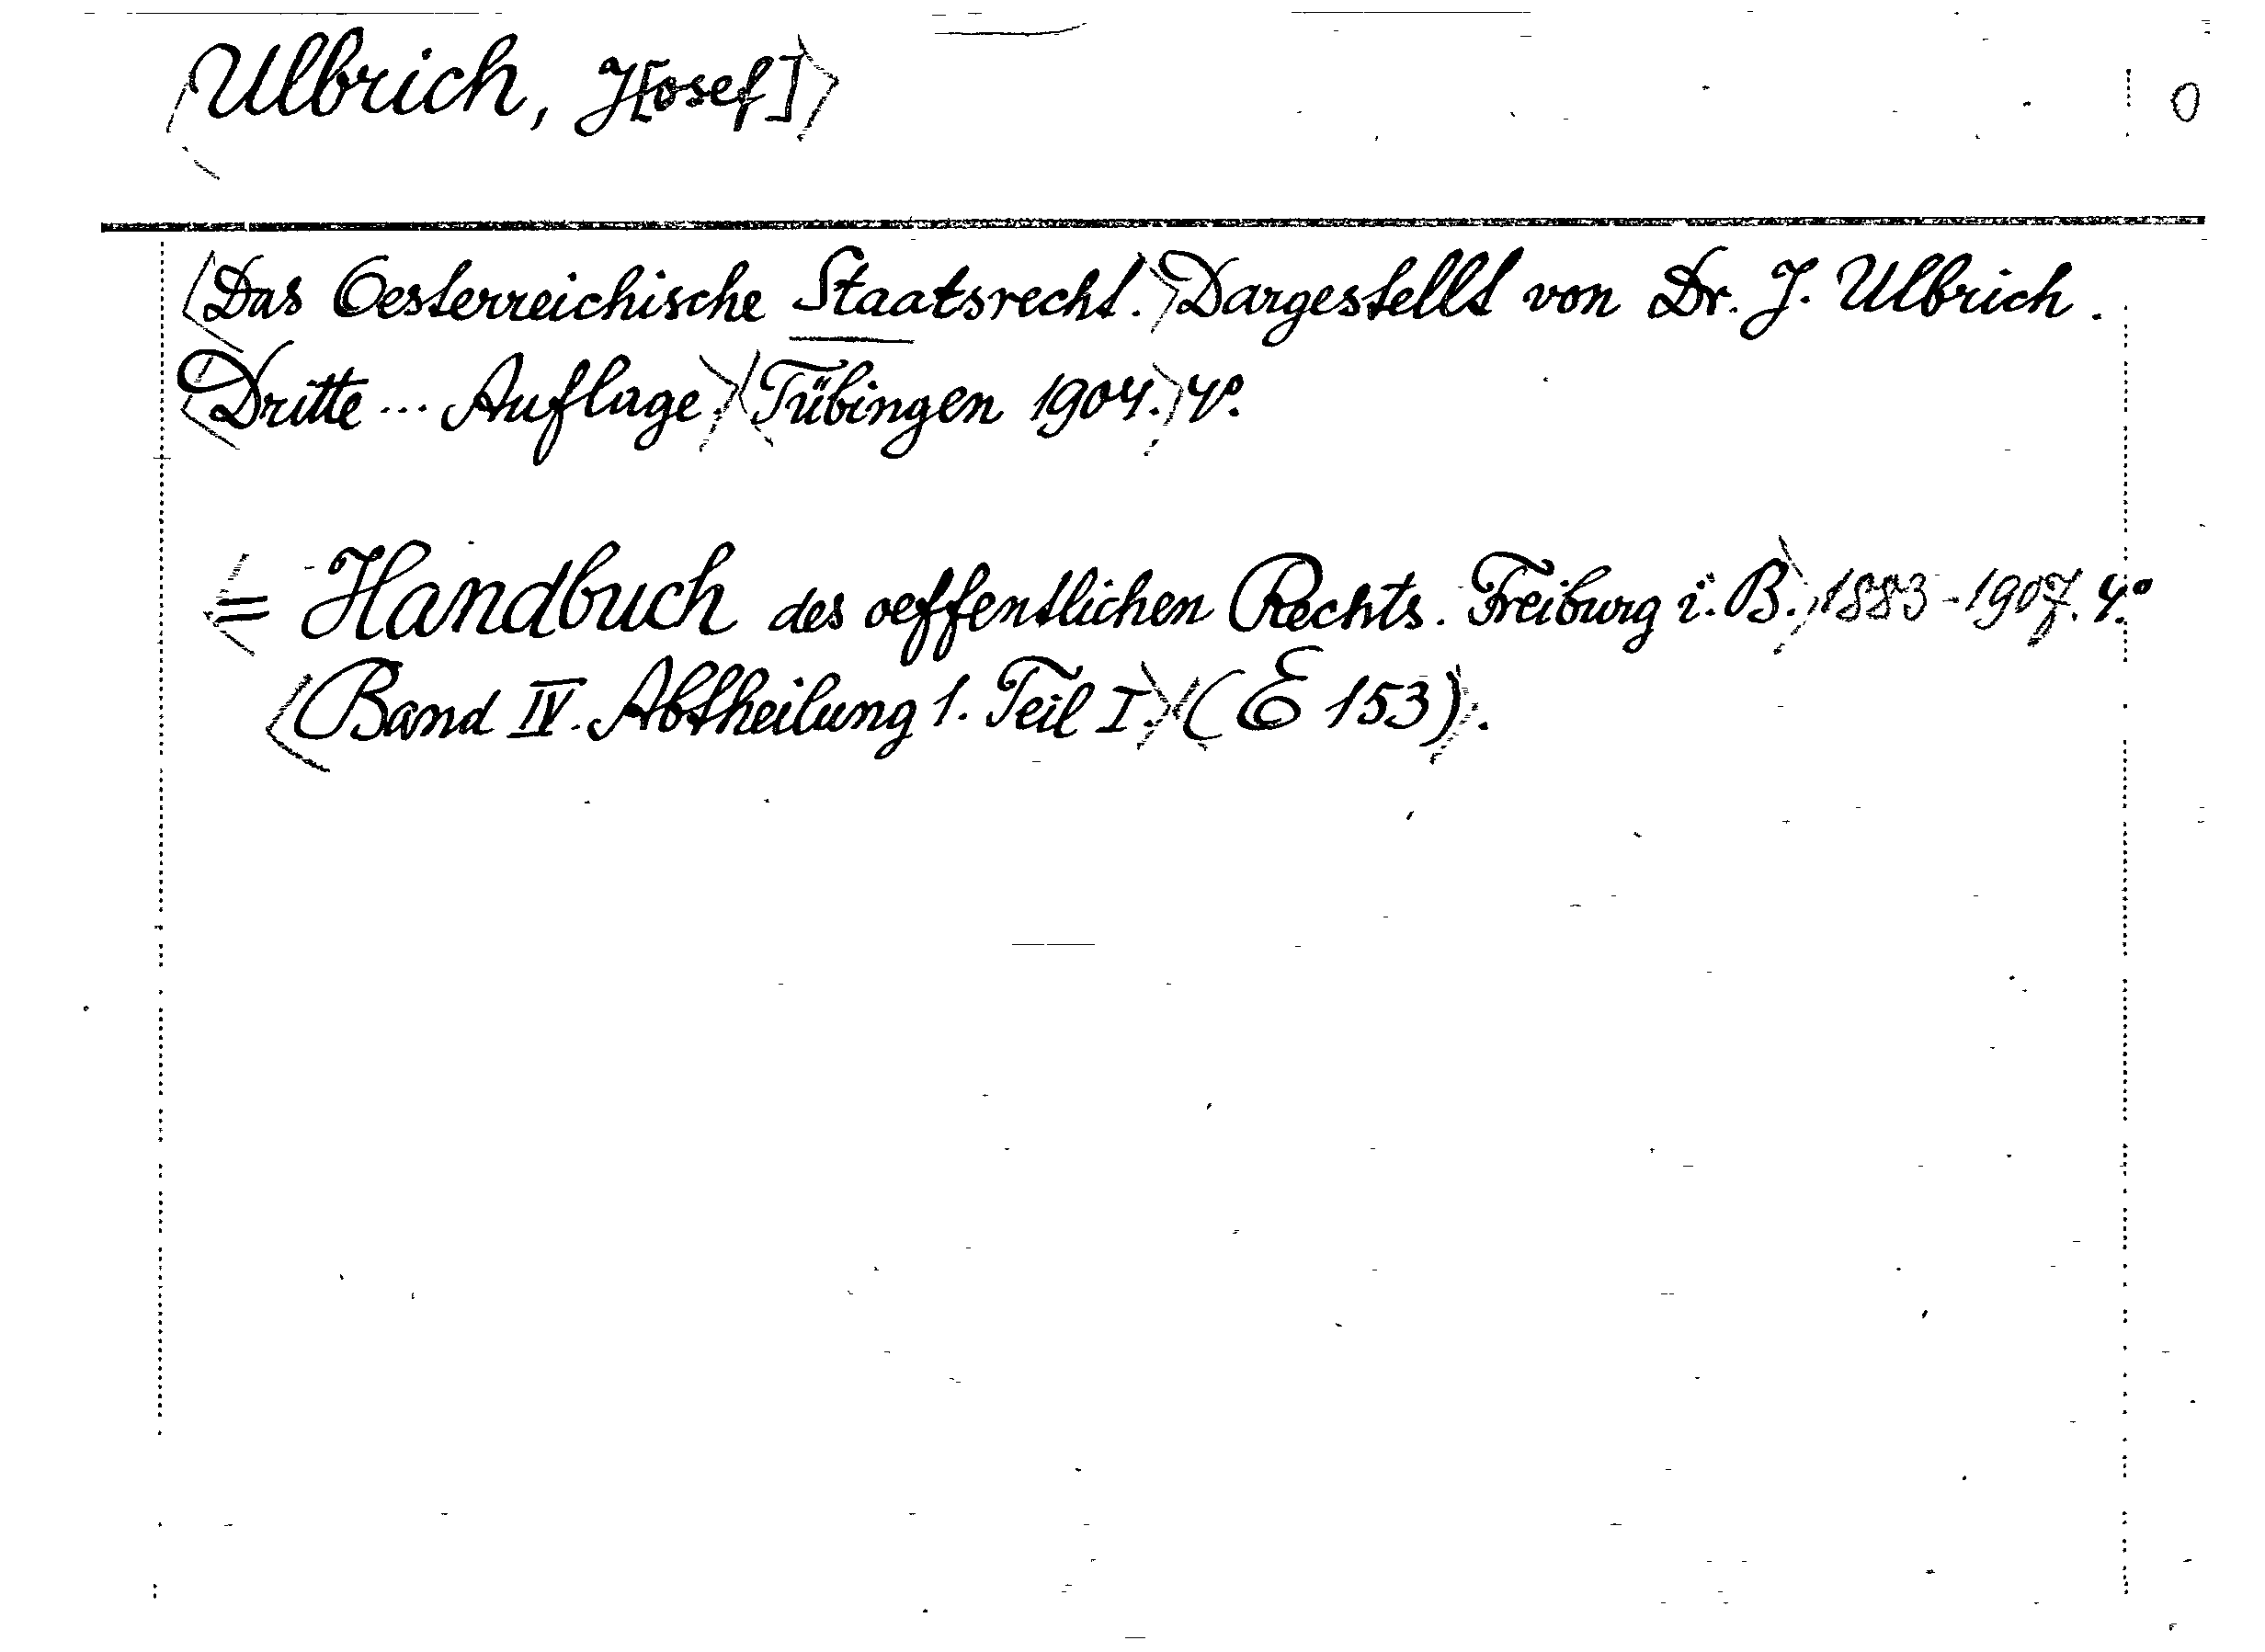 ⟨Ulbrich, J[osef]⟩ 0
⟨Das Oesterreichische Staatsrecht.⟩ Dargestellt von Dr. J. Ulbrich.
⟨Dritte ... Auflage.⟩ ⟨Tübingen 1904.⟩ 4°.
⟨= Handbuch des oeffentlichen Rechts. Freiburg i. B.⟩ 1883-1907. 4°.
⟨Band IV. Abtheilung 1. Teil I.⟩ ⟨(E 153)⟩.